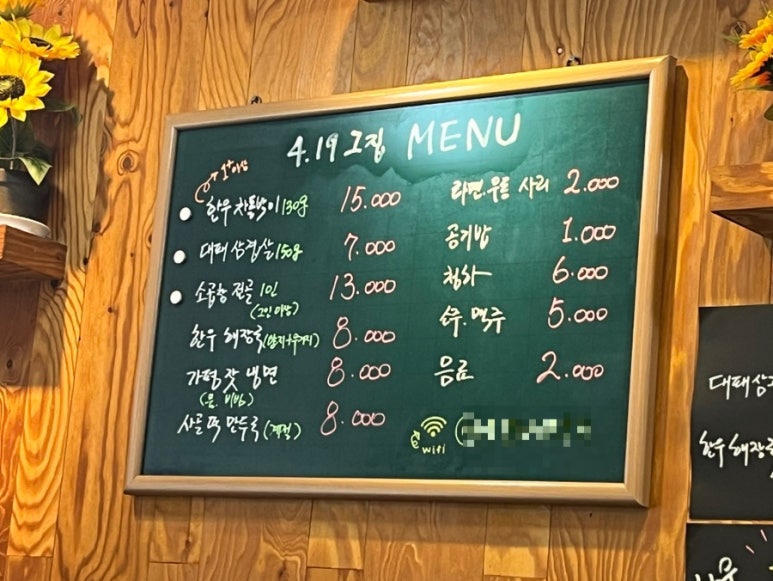 4.19 그집 MENU
1+이상
한우 차돌박이 130g 15.000
대패 삼겹살 150g 7.000
소곱창 전골 1인 13.000
(2인 이상)
한우 해장국 8.000
가평 잣 냉면 8.000
(물. 비빔)
사골 떡 만두국 (계절) 8.000
라면.우동 사리 2.000
공기밥 1.000
청하 6.000
소주.맥주 5.000
음료 2.000
wifi
대패 삼
한우 해장